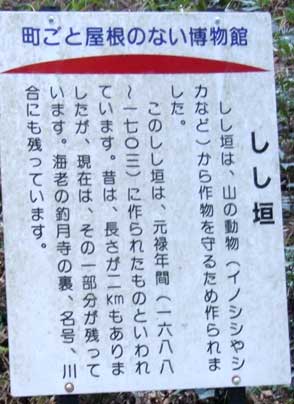 町ごと屋根のない博物館
しし垣
しし垣は、山の動物（イノシシやシ
カなど）から作物を守るため作られま
した。
このしし垣は、元禄年間（一六八八
～一七〇三）に作られたものといわれ
ています。昔は、長さが二kmもありま
したが、現在は、その一部分が残って
います。海老の釣月寺の裏、名号、川
合にも残っています。